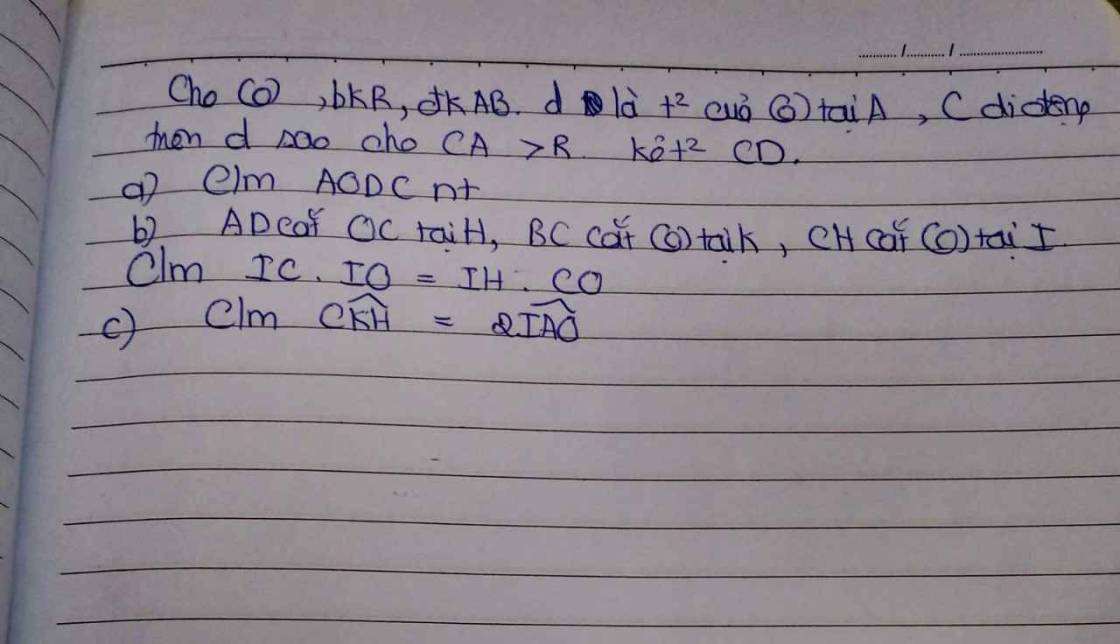 ........./........./....................
Cho (O), bkR, đkAB. d là t² của (O) tại A, C di động
trên d sao cho CA >R. kẻ t² CD.
a) C/m AODC nt
b) AD cắt OC tại H, BC cắt (O) tại K, CH cắt (O) tại I.
C/m IC . IO = IH . CO
c) C/m CKH = 2IAO